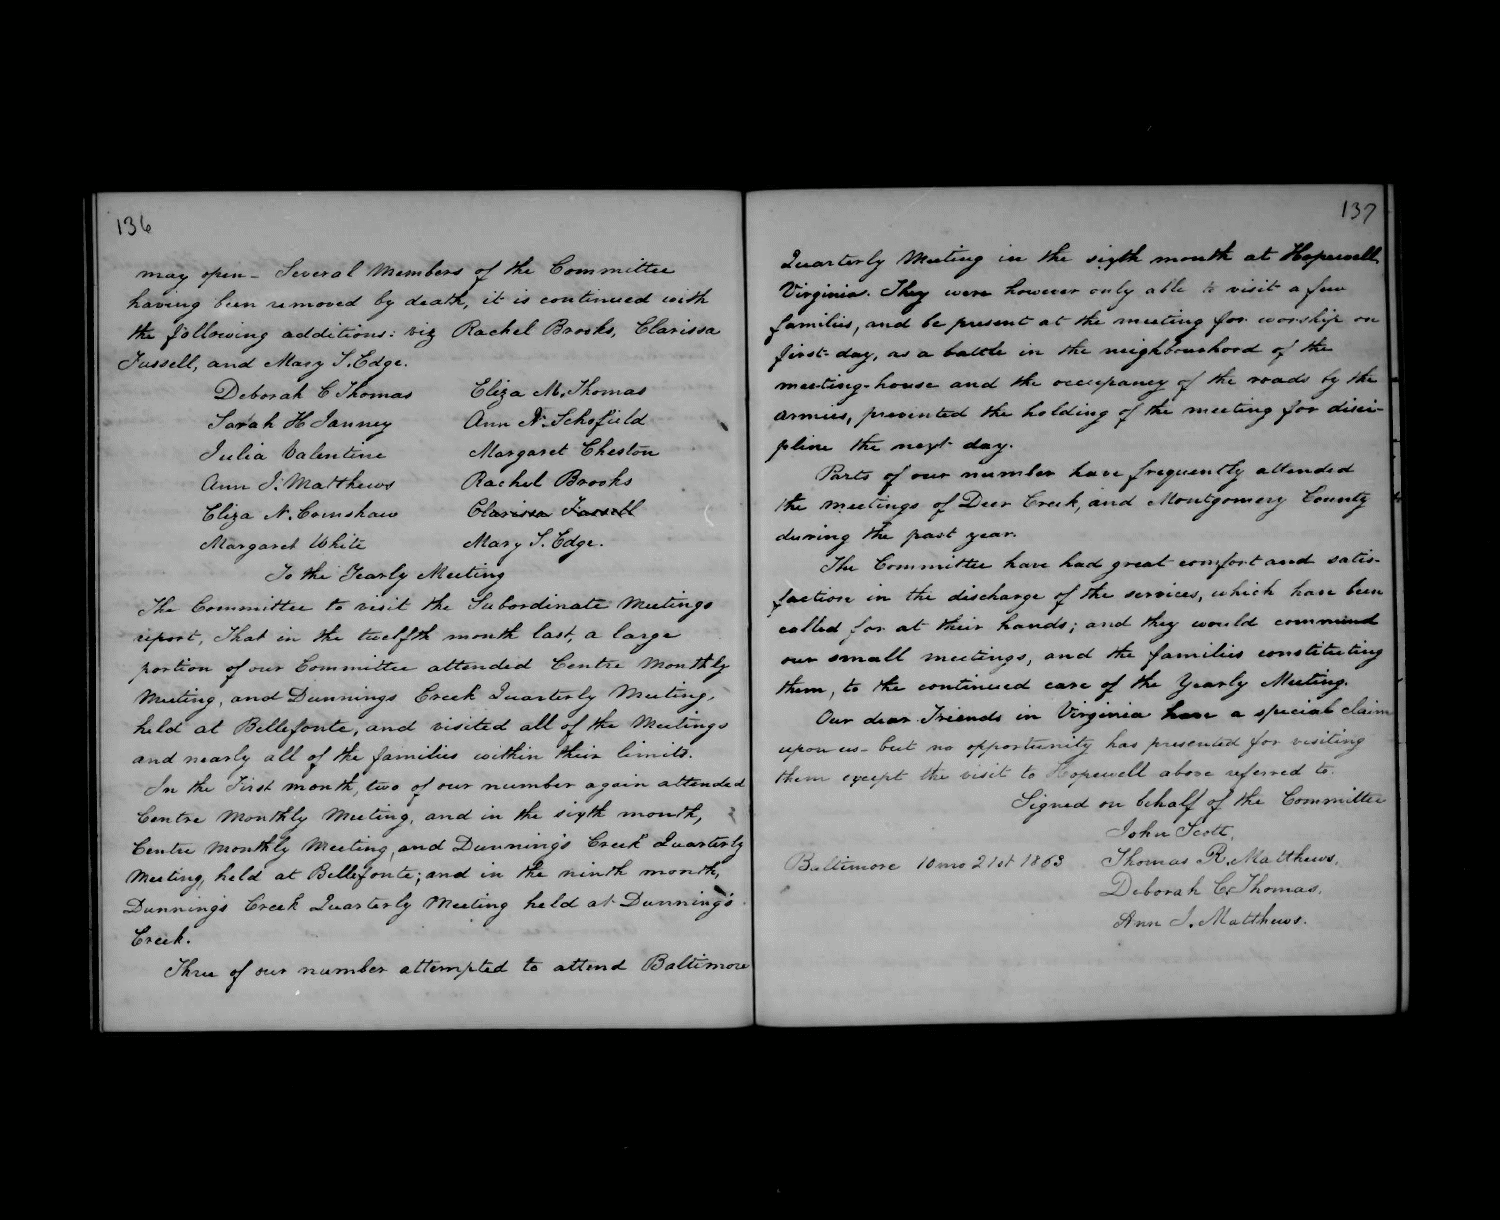 136
may open - Several Members of the Committee
having been removed by death, it is continued with
the following additions: viz Rachel Brooks, Clarissa
Fussell, and Mary S. Edge.
Deborah C Thomas Eliza M. Thomas
Sarah H Janney Ann N. Schofield
Julia Valentine Margaret Cheston
Ann J. Matthews Rachel Brooks
Eliza N. Comshaw Clarissa Fussell
Margaret White Mary S. Edge.
To the Yearly Meeting
The Committee to visit the Subordinate Meetings
report, That in the twelfth month last, a large
portion of our Committee attended Centre Monthly
Meeting, and Dunnings Creek Quarterly Meeting,
held at Bellefonte, and visited all of the Meetings
and nearly all of the families within their limits.
In the First month, two of our number again attended
Centre Monthly Meeting, and in the sixth month,
Centre Monthly Meeting, and Dunning's Creek Quarterly
Meeting, held at Bellefonte; and in the ninth month,
Dunning's Creek Quarterly Meeting held at Dunning's
Creek.
Three of our number attempted to attend Baltimore
137
Quarterly Meeting in the sixth month at Hopewell,
Virginia. They were however only able to visit a few
families, and be present at the meeting for worship on
first-day, as a battle in the neighbourhood of the
meeting-house and the occupancy of the roads by the
armies, prevented the holding of the meeting for disci-
pline the next day.
Parts of our number have frequently attended
the meetings of Deer Creek, and Montgomery County
during the past year.
The Committee have had great comfort and satis-
faction in the discharge of the services, which have been
called for at their hands; and they would commend
our small meetings, and the families constituting
them, to the continued care of the Yearly Meeting.
Our dear Friends in Virginia have a special claim
upon us - but no opportunity has presented for visiting
them except the visit to Hopewell above referred to.
Signed on behalf of the Committee
John Scott,
Baltimore 10 mo 21st 1863 Thomas R. Matthews,
Deborah C. Thomas.
Ann J. Matthews.